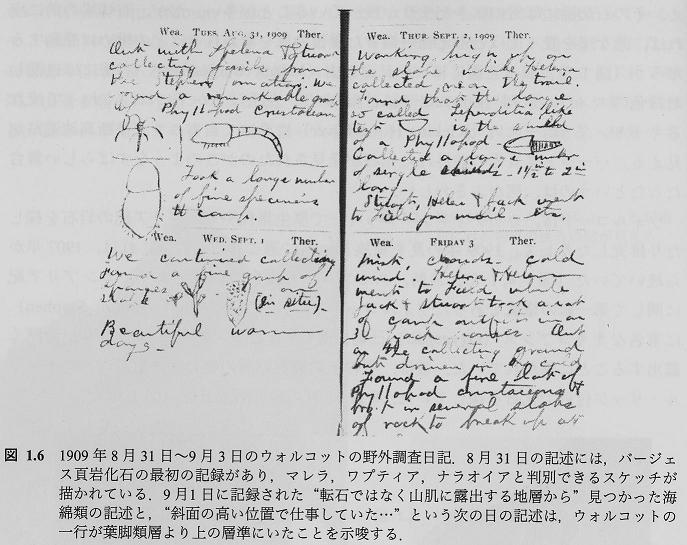 Wea. TUES. AUG. 31, 1909 Ther.
Out with Helena & Stuart
collecting fossils from
the Stephen formation. We
found a remarkable group
of Phyllopod Crustaceans
Took a large number
of fine specimens
to camp.
Wea. WED. SEPT. 1 Ther.
We continued collecting
found a fine group of
sponges on
(in situ).
Beautiful warm
days -
Wea. THUR. SEPT. 2, 1909 Ther.
Working high up on
the slope while Helena
collected near the trail
Found that the large
so called Leperditia like
test is the
of a Phyllopod -
Collected a large number
of single - 1½ to 2 in
long -
Stuart, Helen & Jack went
to Field for mail - etc
Wea. FRIDAY 3 Ther.
clouds - cold
wind. Helena & Helen
went to Field while
Jack & Stuart took a lot
of camp outfit in on
3 pack horses. Out
on the collecting ground
but driven in by cold
Found a fine slab of
Phyllopod crustaceans &
brot in several slabs
of rock to break up at
図 1.6 1909年8月31日~9月3日のウォルコットの野外調査日記.8月31日の記述には,バージェ
ス頁岩化石の最初の記録があり,マレラ,ワプティア,ナラオイアと判別できるスケッチが
描かれている.9月1日に記録された“転石ではなく山肌に露出する地層から”見つかった海
綿類の記述と,“斜面の高い位置で仕事していた…”という次の日の記述は,ウォルコットの
一行が葉脚類層より上の層準にいたことを示唆する.